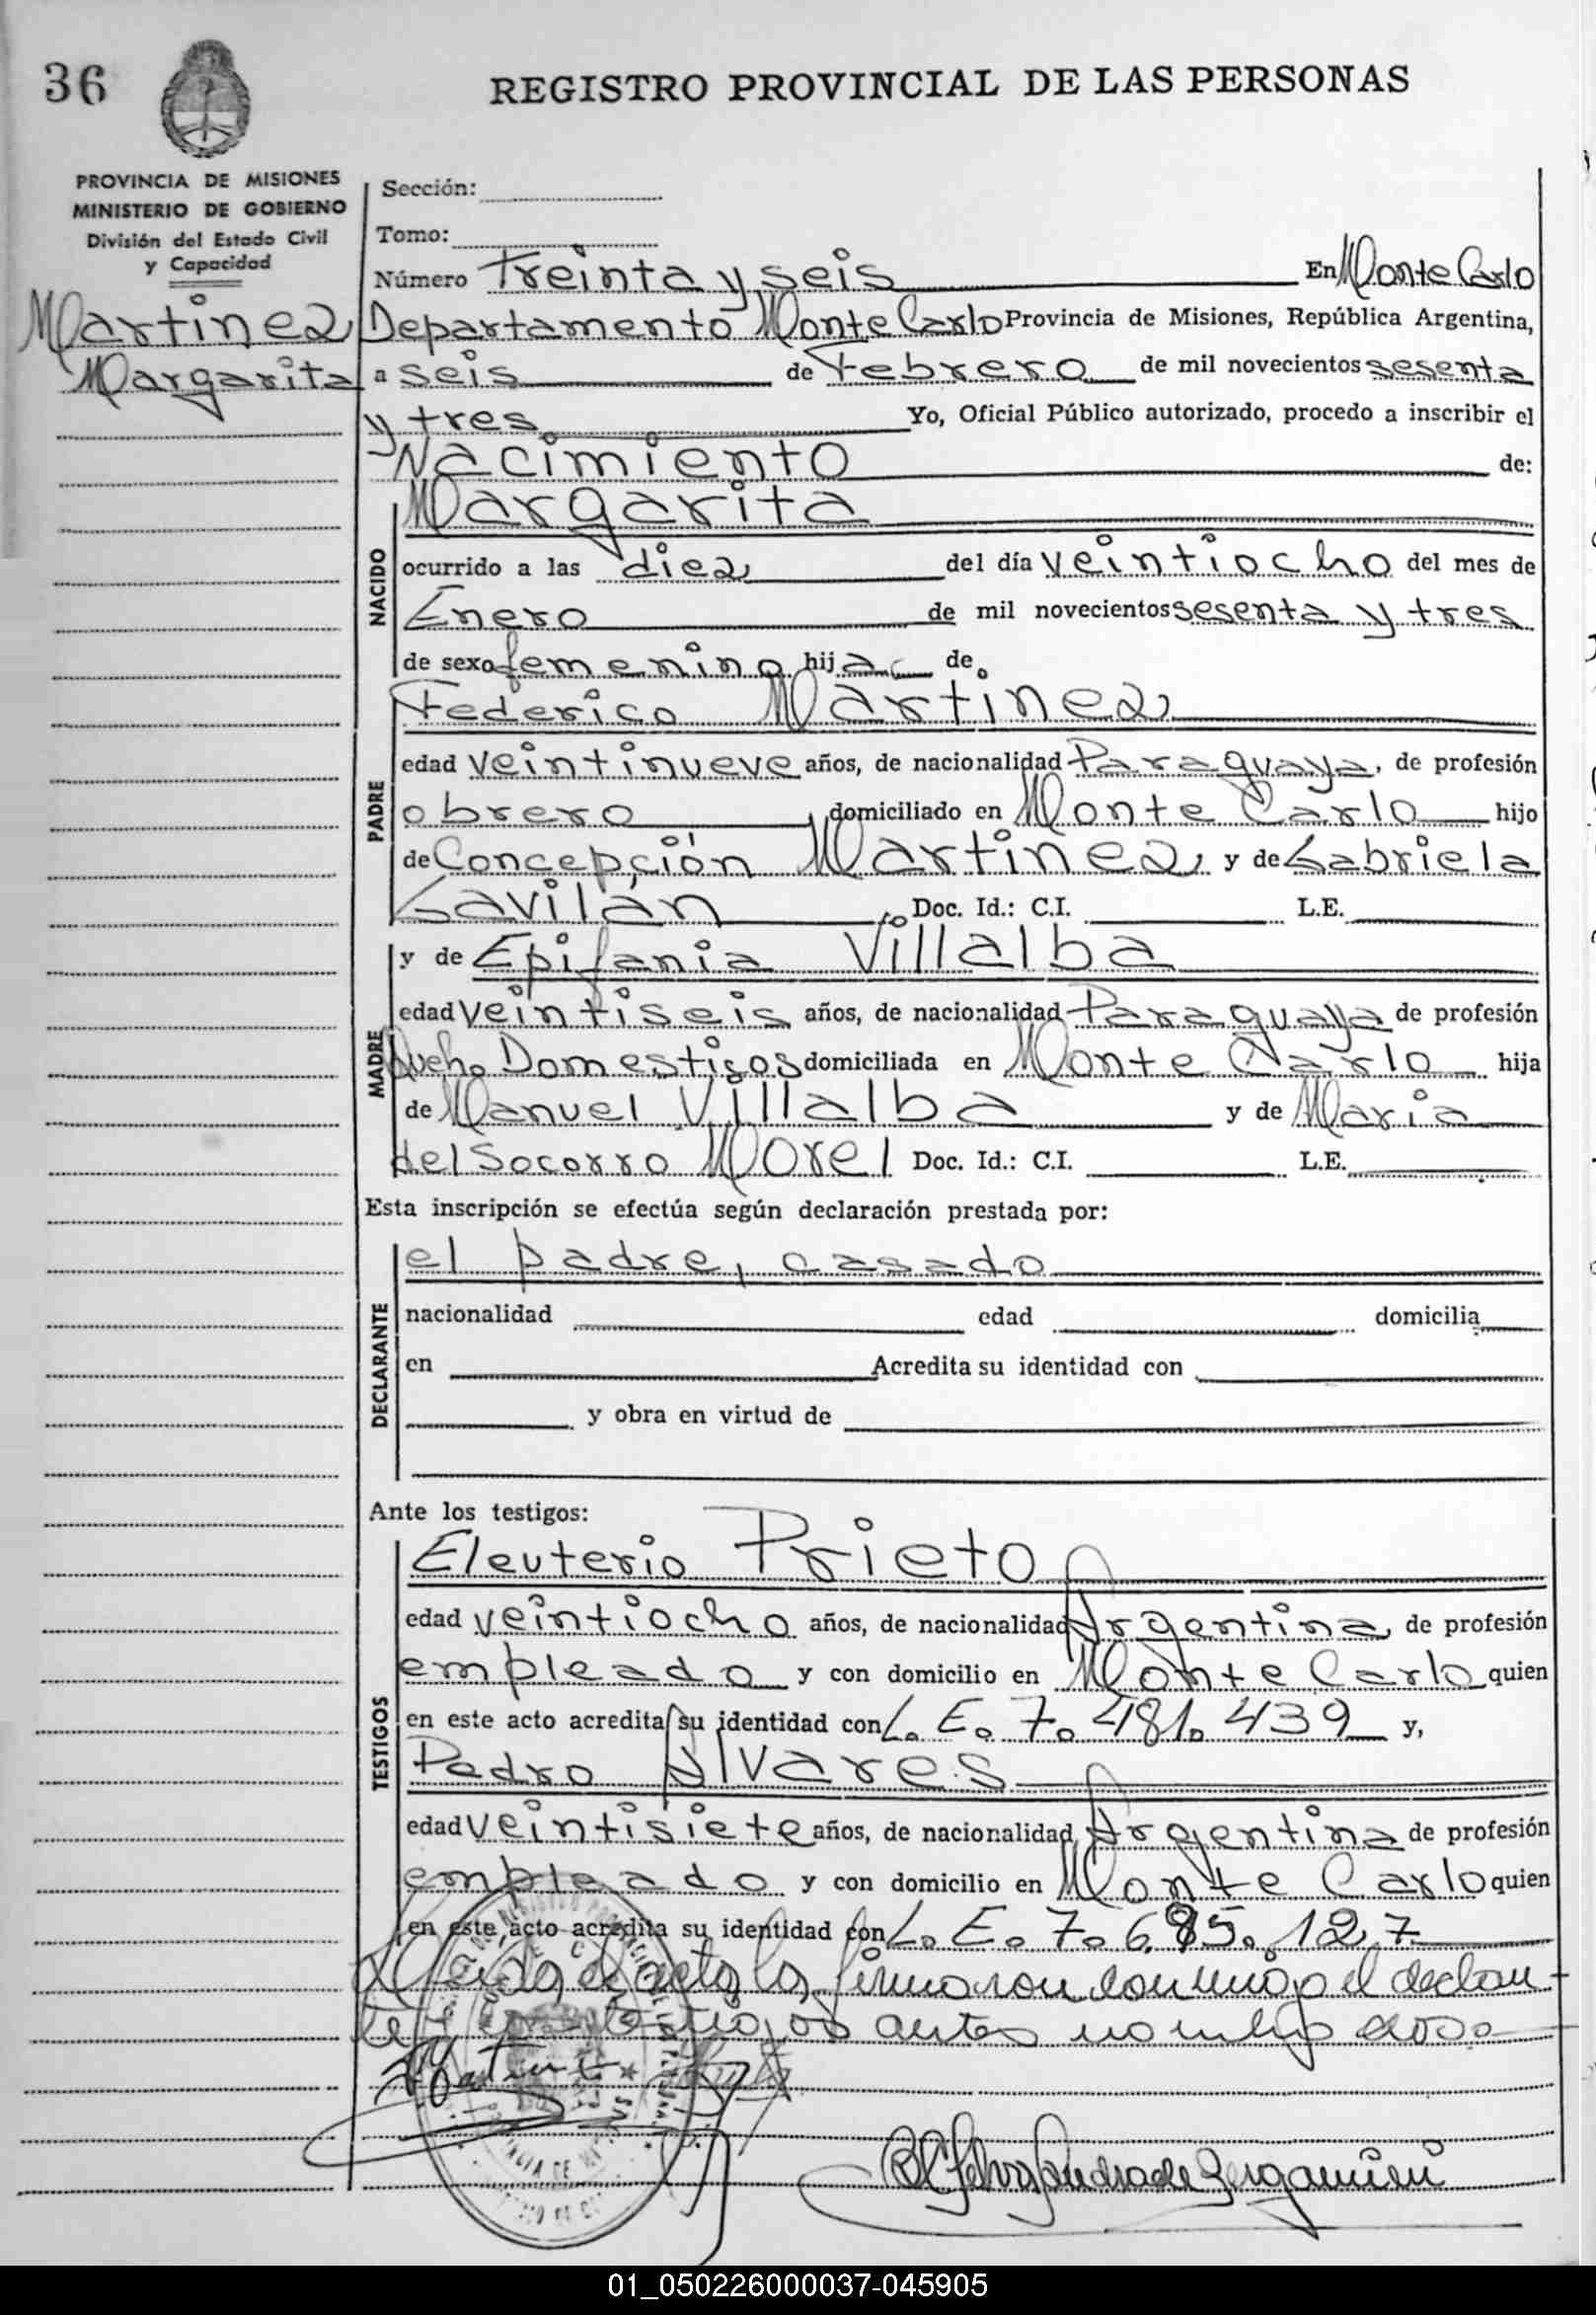 36
REGISTRO PROVINCIAL DE LAS PERSONAS
PROVINCIA DE MISIONES
MINISTERIO DE GOBIERNO
División del Estado Civil
y Capacidad
Martinez
Margarita
Sección:
Tomo:
Número Treinta y seis En Monte Carlo
Departamento Monte Carlo Provincia de Misiones, República Argentina,
a seis de Febrero de mil novecientos sesenta
y tres Yo, Oficial Público autorizado, procedo a inscribir el
Nacimiento de:
NACIDO
Margarita
ocurrido a las diez del día veintiocho del mes de
Enero de mil novecientos sesenta y tres
de sexo femenino hija de
PADRE
Federico Martinez
edad veintinueve años, de nacionalidad Paraguaya, de profesión
obrero domiciliado en Monte Carlo hijo
de Concepción Martinez y de Gabriela
Gavilán Doc. Id.: C.I. L.E.
MADRE
y de Epifania Villalba
edad veintiseis años, de nacionalidad Paraguaya de profesión
Queh. Domesticos domiciliada en Monte Carlo hija
de Manuel Villalba y de Maria
del Socorro Morel Doc. Id.: C.I. L.E.
Esta inscripción se efectúa según declaración prestada por:
DECLARANTE
el padre, casado
nacionalidad edad domicilia
en Acredita su identidad con
y obra en virtud de
Ante los testigos:
TESTIGOS
Eleuterio Prieto
edad veintiocho años, de nacionalidad Argentina de profesión
empleado y con domicilio en Monte Carlo quien
en este acto acredita su identidad con L. E. 7.481.439 y,
Pedro Alvares
edad veintisiete años, de nacionalidad Argentina de profesión
empleado y con domicilio en Monte Carlo quien
en este acto acredita su identidad con L. E. 7.685.127
Leida el acta la firmaron conmigo el declaran
te y los testigos antes nombrados.
01_050226000037-045905